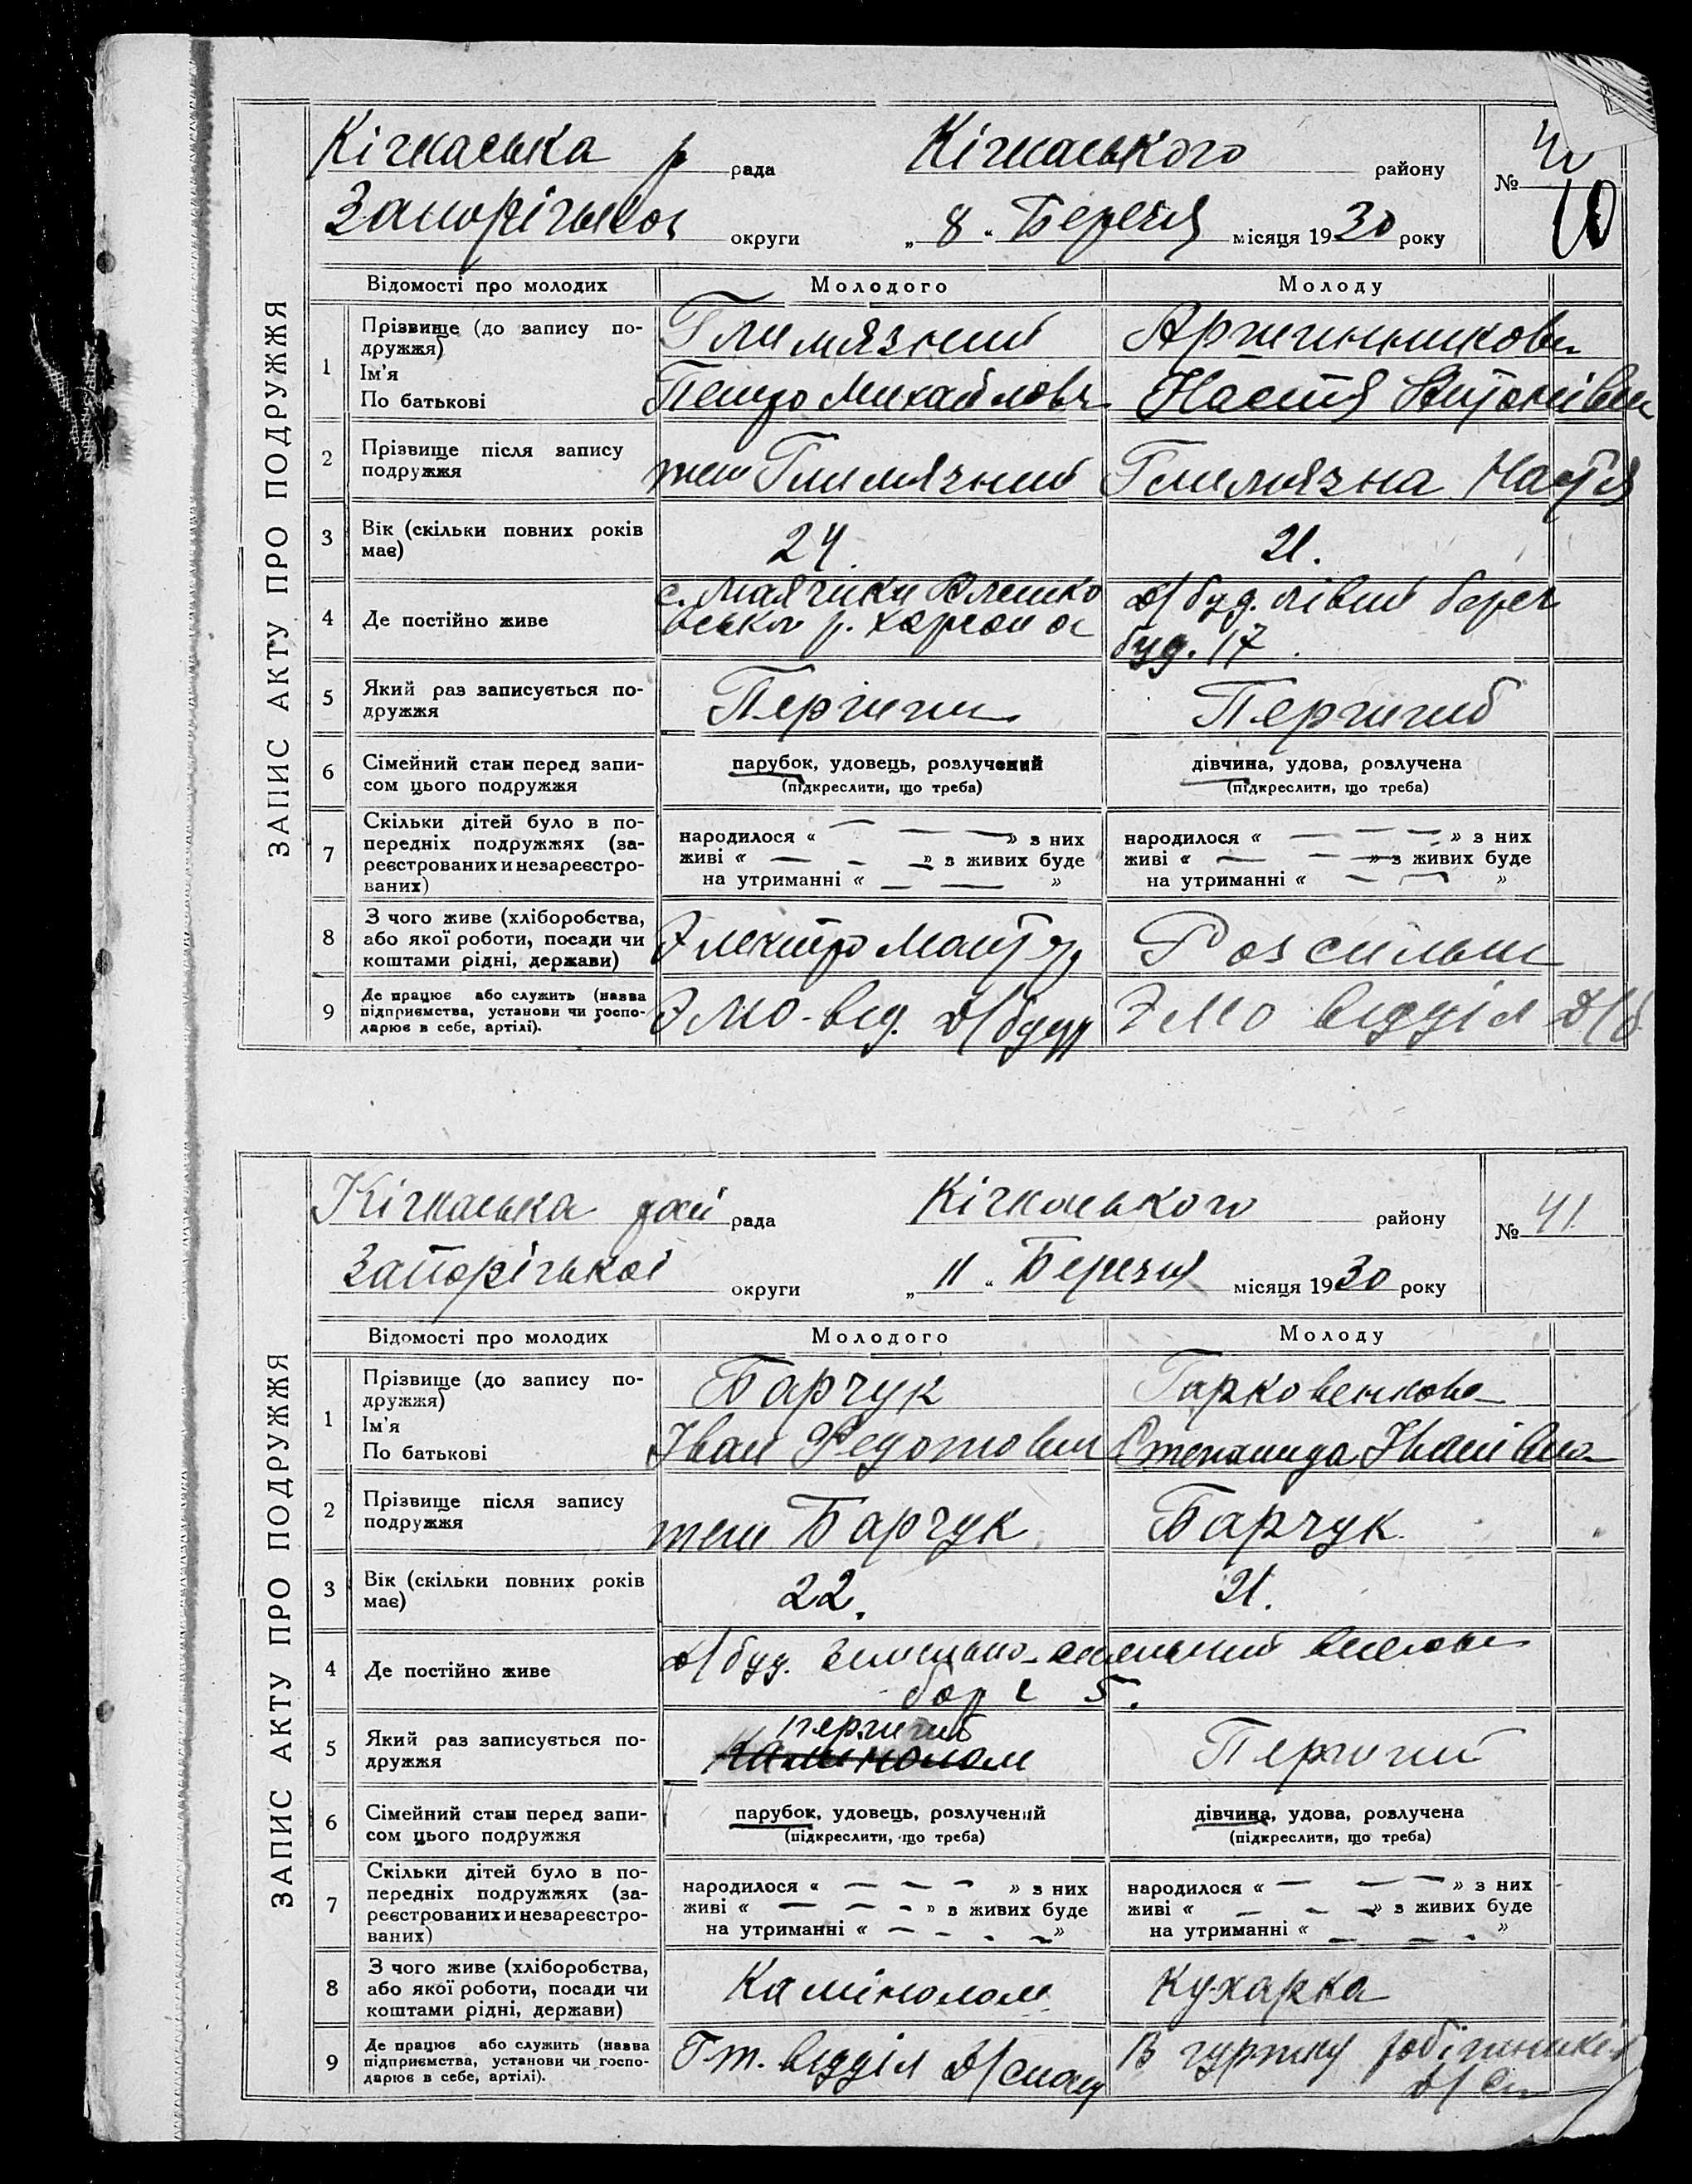 ЗАПИС АКТУ ПРО ПОДРУЖЖЯ
Кічкаська р рада Кічкаського району № 40
Запорізької округи „ 8 “ Березня місяця 1930 року
Відомості про молодих Молодого Молоду
1 Прізвище (до запису по-
дружжя)
Ім'я
По батькові
Петро Михайлович Настя Антонівна
2 Прізвище після запису
подружжя
3 Вік (скільки повних років
має)
24. 21.
4 Де постійно живе
с. Маячки Олешко
вськ р. Херсон ок
Д/буд. лівий берег
буд. 17
5 Який раз записується по-
дружжя
Перший Перший
6 Сімейний стан перед запи-
сом цього подружжя
парубок, удовець, розлучений
(підкреслити, що треба)
дівчина, удова, розлучена
(підкреслити, що треба)
7 Скільки дітей було в по-
передніх подружжях (за-
реєстрованих и незареєстро-
ваних)
народилося « — — — » з них
живі « — - — » з живих буде
на утриманні « — — »
народилося « — — — » з них
живі « — — — » з живих буде
на утриманні « — — »
8 З чого живе (хліборобства,
або якої роботи, посади чи
коштами рідні, держави)
Электро Монтер Розсильна
9 Де працює або служить (назва
підприємства, установи чи госпо-
дарює в себе, артілі).
ЭМО від. Д/буду ЭМО відділ Д/б
ЗАПИС АКТУ ПРО ПОДРУЖЖЯ
Кічкаська рай рада Кічкаського району № 41
Запорізької округи „ 11 “ Березня місяця 1930 року
Відомості про молодих Молодого Молоду
1 Прізвище (до запису по-
дружжя)
Ім'я
По батькові
Барчук Гарковенкова
Іван Федотович Степанида Іванівна
2 Прізвище після запису
подружжя
теж Барчук Барчук
3 Вік (скільки повних років
має)
22. 21.
4 Де постійно живе
Д/буд.
бар 5.
5 Який раз записується по-
дружжя
перший
Каменолом
Перший
6 Сімейний стан перед запи-
сом цього подружжя
парубок, удовець, розлучений
(підкреслити, що треба)
дівчина, удова, розлучена
(підкреслити, що треба)
7 Скільки дітей було в по-
передніх подружжях (за-
реєстрованих и незареєстро-
ваних)
народилося « — — — » з них
живі « — — - » з живих буде
на утриманні « — - - - »
народилося « — — — » з них
живі « — - — » з живих буде
на утриманні « — — - »
8 З чого живе (хліборобства,
або якої роботи, посади чи
коштами рідні, держави)
Камінолом Кухарка
9 Де працює або служить (назва
підприємства, установи чи госпо-
дарює в себе, артілі).
Гт. відділ Д/
В гуртку робітників